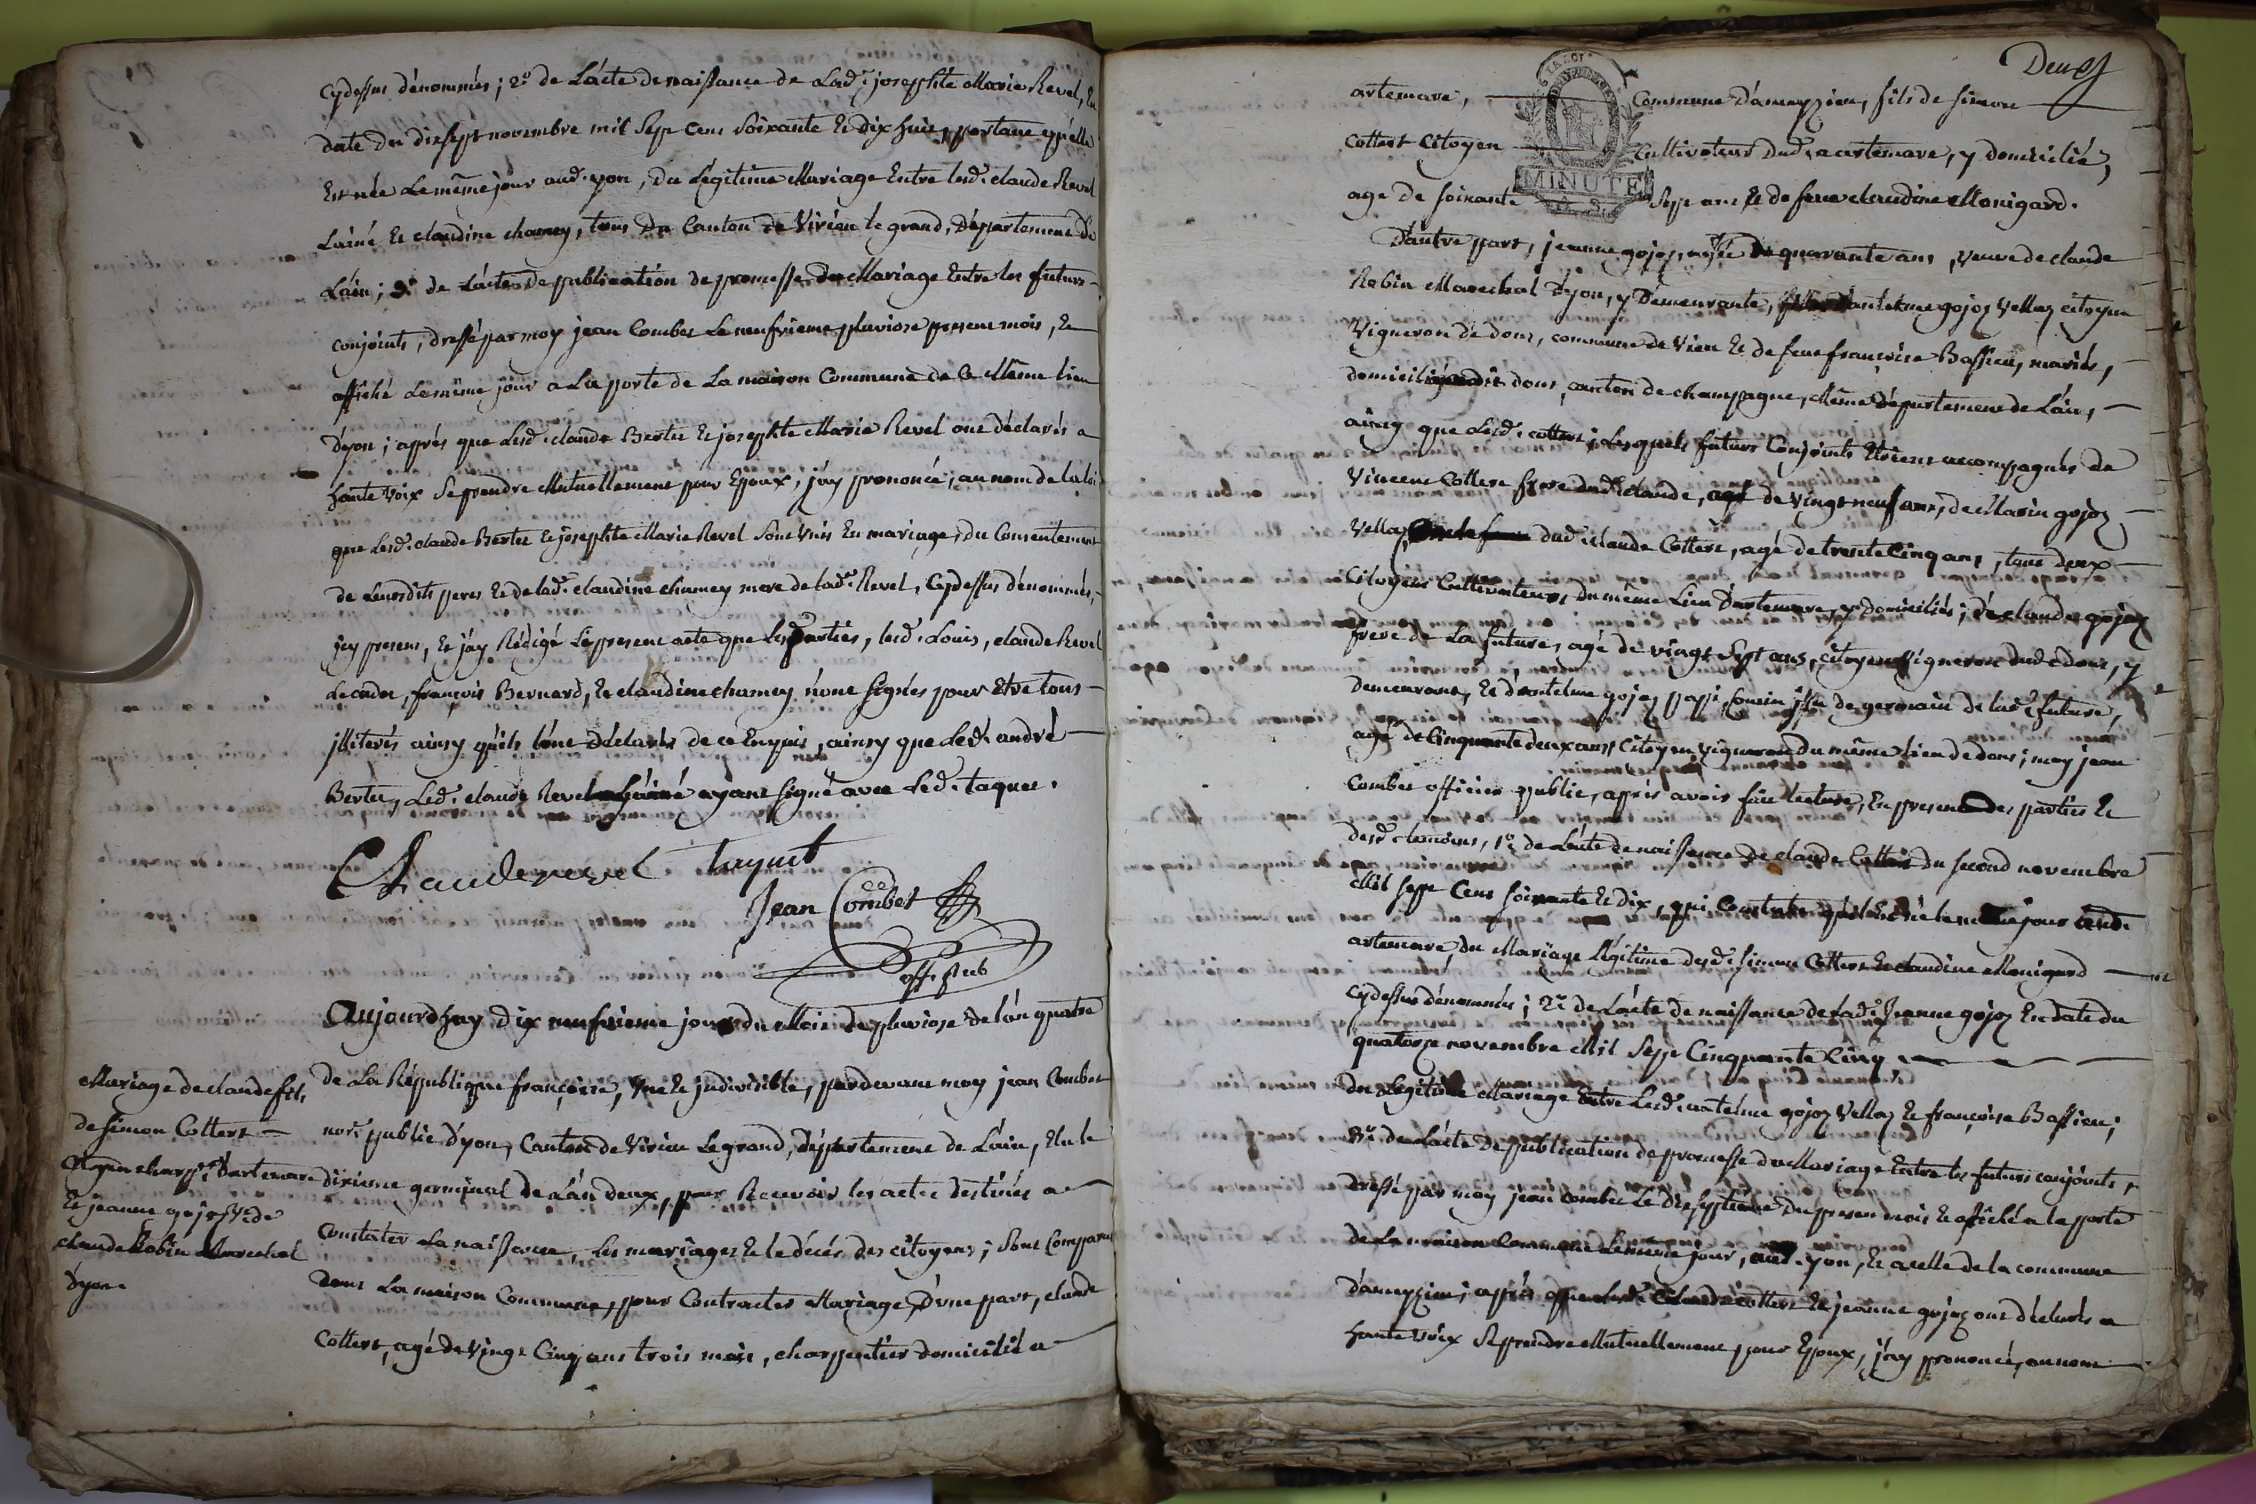 cydessus dénommés ; 2º de Lácte de naissance de Lad.e josephte Marie Revel, En
date du dixsept novembre mil Sept Cens Soixante Et dix huit, portant qu'elle
Est née Le même jour aud. yon, du Légitime Mariage Entre lesd. claude Revel
Lainé Et claudine chamey, tous du Canton de Virieu le grand, Département de
Láin ; de Lácte de publication de promesse de Mariage Entre les futurs
conjoints, dressé par moy jean Combet Le neufvieme pluviose present mois, Et
affiché Le même jour a La porte de La maison Commune de Ce Même lieu
d'yon ; après que Lesd. claude Bertet Et josephte Marie Revel ont déclarés a
haute voix Se prendre Mutuellement pour Epoux, j'ay prononcé, au nom de la loi
que Lesd. claude Bertet Et josephte Marie Revel Sont Unis En mariage, du Consentement
de Leursdits peres Et de lad. claudine chamey mere de lad.e Revel, Cydessus dénommés,
jcy presens, Et j'ay Rédigé Le present acte que Lesd. parties, lesd. Louis, claude Revel
Le cadet, françois Bernard, Et claudine chamey, n'ont Signés pour Etre tous
jlliterés ainsy qu'ils l'ont Déclarés de ce Enquis, ainsy que Led. andré
Bertet, Led. claude Revel Lainé ayant Signé avec Led. taquet.
Claude revel taquet
Jean Combet
off. pub
Aujourdhuy dix neufvieme jour du Mois de pluviose de l'an quatre
Mariage de claude fils
de Simon Cottert
Citoyen charp.r d'artemare
Et jeanne gojoz v.e de
claude Robin Marechal
d'yon.
de La République françoise, Une Et jndivisible, pardevant moy jean Combet
nor.e public d'yon, Canton de Virieu Le grand, Département de Láin, Elu le
dixieme germinal de L'an deux, pour Recevoir les actes destinés a
Constater La naissance, Les mariages Et le décés des citoyens ; Sont Comparus
dans La maison Commune, pour Contracter Mariage, D'une part, claude
Cottert, agé de Vingt Cinq ans trois mois, charpentier domicilié a
Deux
artemare, Commune D'ameyzieu, fils de Simon
Cottert Citoyen Cultivateur Dud. artemare, y domicilié,
age de Soixante Sept ans Et de feue claudine Monigard.
MINUTE
D'autre part, jeanne gojoz, agée de quarante ans, veuve de claude
Robin Marechal d'yon, y Demeurante, antelme gojoz Vellaz citoyen
Vigneron de dons, commune de Vieu Et de feue françoise Bassieu, mariés,
domiciliés dons, canton de champagne, Même Département de Láin,
ainsy que Lesd. cottert ; Lesquels futurs Conjoints Etoient accompagnés de
Vincent Cottert frere dud. claude, agé de vingt neuf ans, de Marin gojoz
Vellaz dud. claude Cottert, agé de trente Cinq ans, tous deux
Citoyens Cultivateurs, du même Lieu d'artemare, y domiciliés ; de claude gojoz
frere de La future, agé de vingt Sept ans, citoyen Vigneron dud. dons, y
demeurant, Et d'antelme gojoz Cousin jssu de germain de lad. future,
agé de Cinquante deux ans, Citoyen Vigneron du même lieu de dons ; moy jean
Combet officier public, après avoir fait lecture, En presence des parties Et
desd. temoins, 1º de Lácte de naissance de claude Cottert du second novembre
Mil Sept Cens Soixante Et dix, qui Constate qu'il Est né le même jour aud.
artemare, du Mariage Légitime desd. Simon Cottert Et claudine Monigard
cydessus dénommés ; 2º de Lácte de naissance de Lad. Jeanne gojoz En date du
quatorze novembre Mil Sept Cinquante Cinq
du Legitime Mariage Entre Lesd. antelme gojoz Vellaz Et françoise Bassieu ;
de Lácte de publication de promesse de Mariage Entre les futurs conjoints,
dressé par moy jean combet Le dixseptieme du present mois Et affiché a la porte
de La maison Commune Le même jour, aud. yon, Et a celle de la commune
d'ameyzieu ; après que Lesd. Claude Cottert Et jeanne gojoz ont déclarés a
haute voix Se prendre Mutuellement pour Epoux, j'ay prononcé, au nom